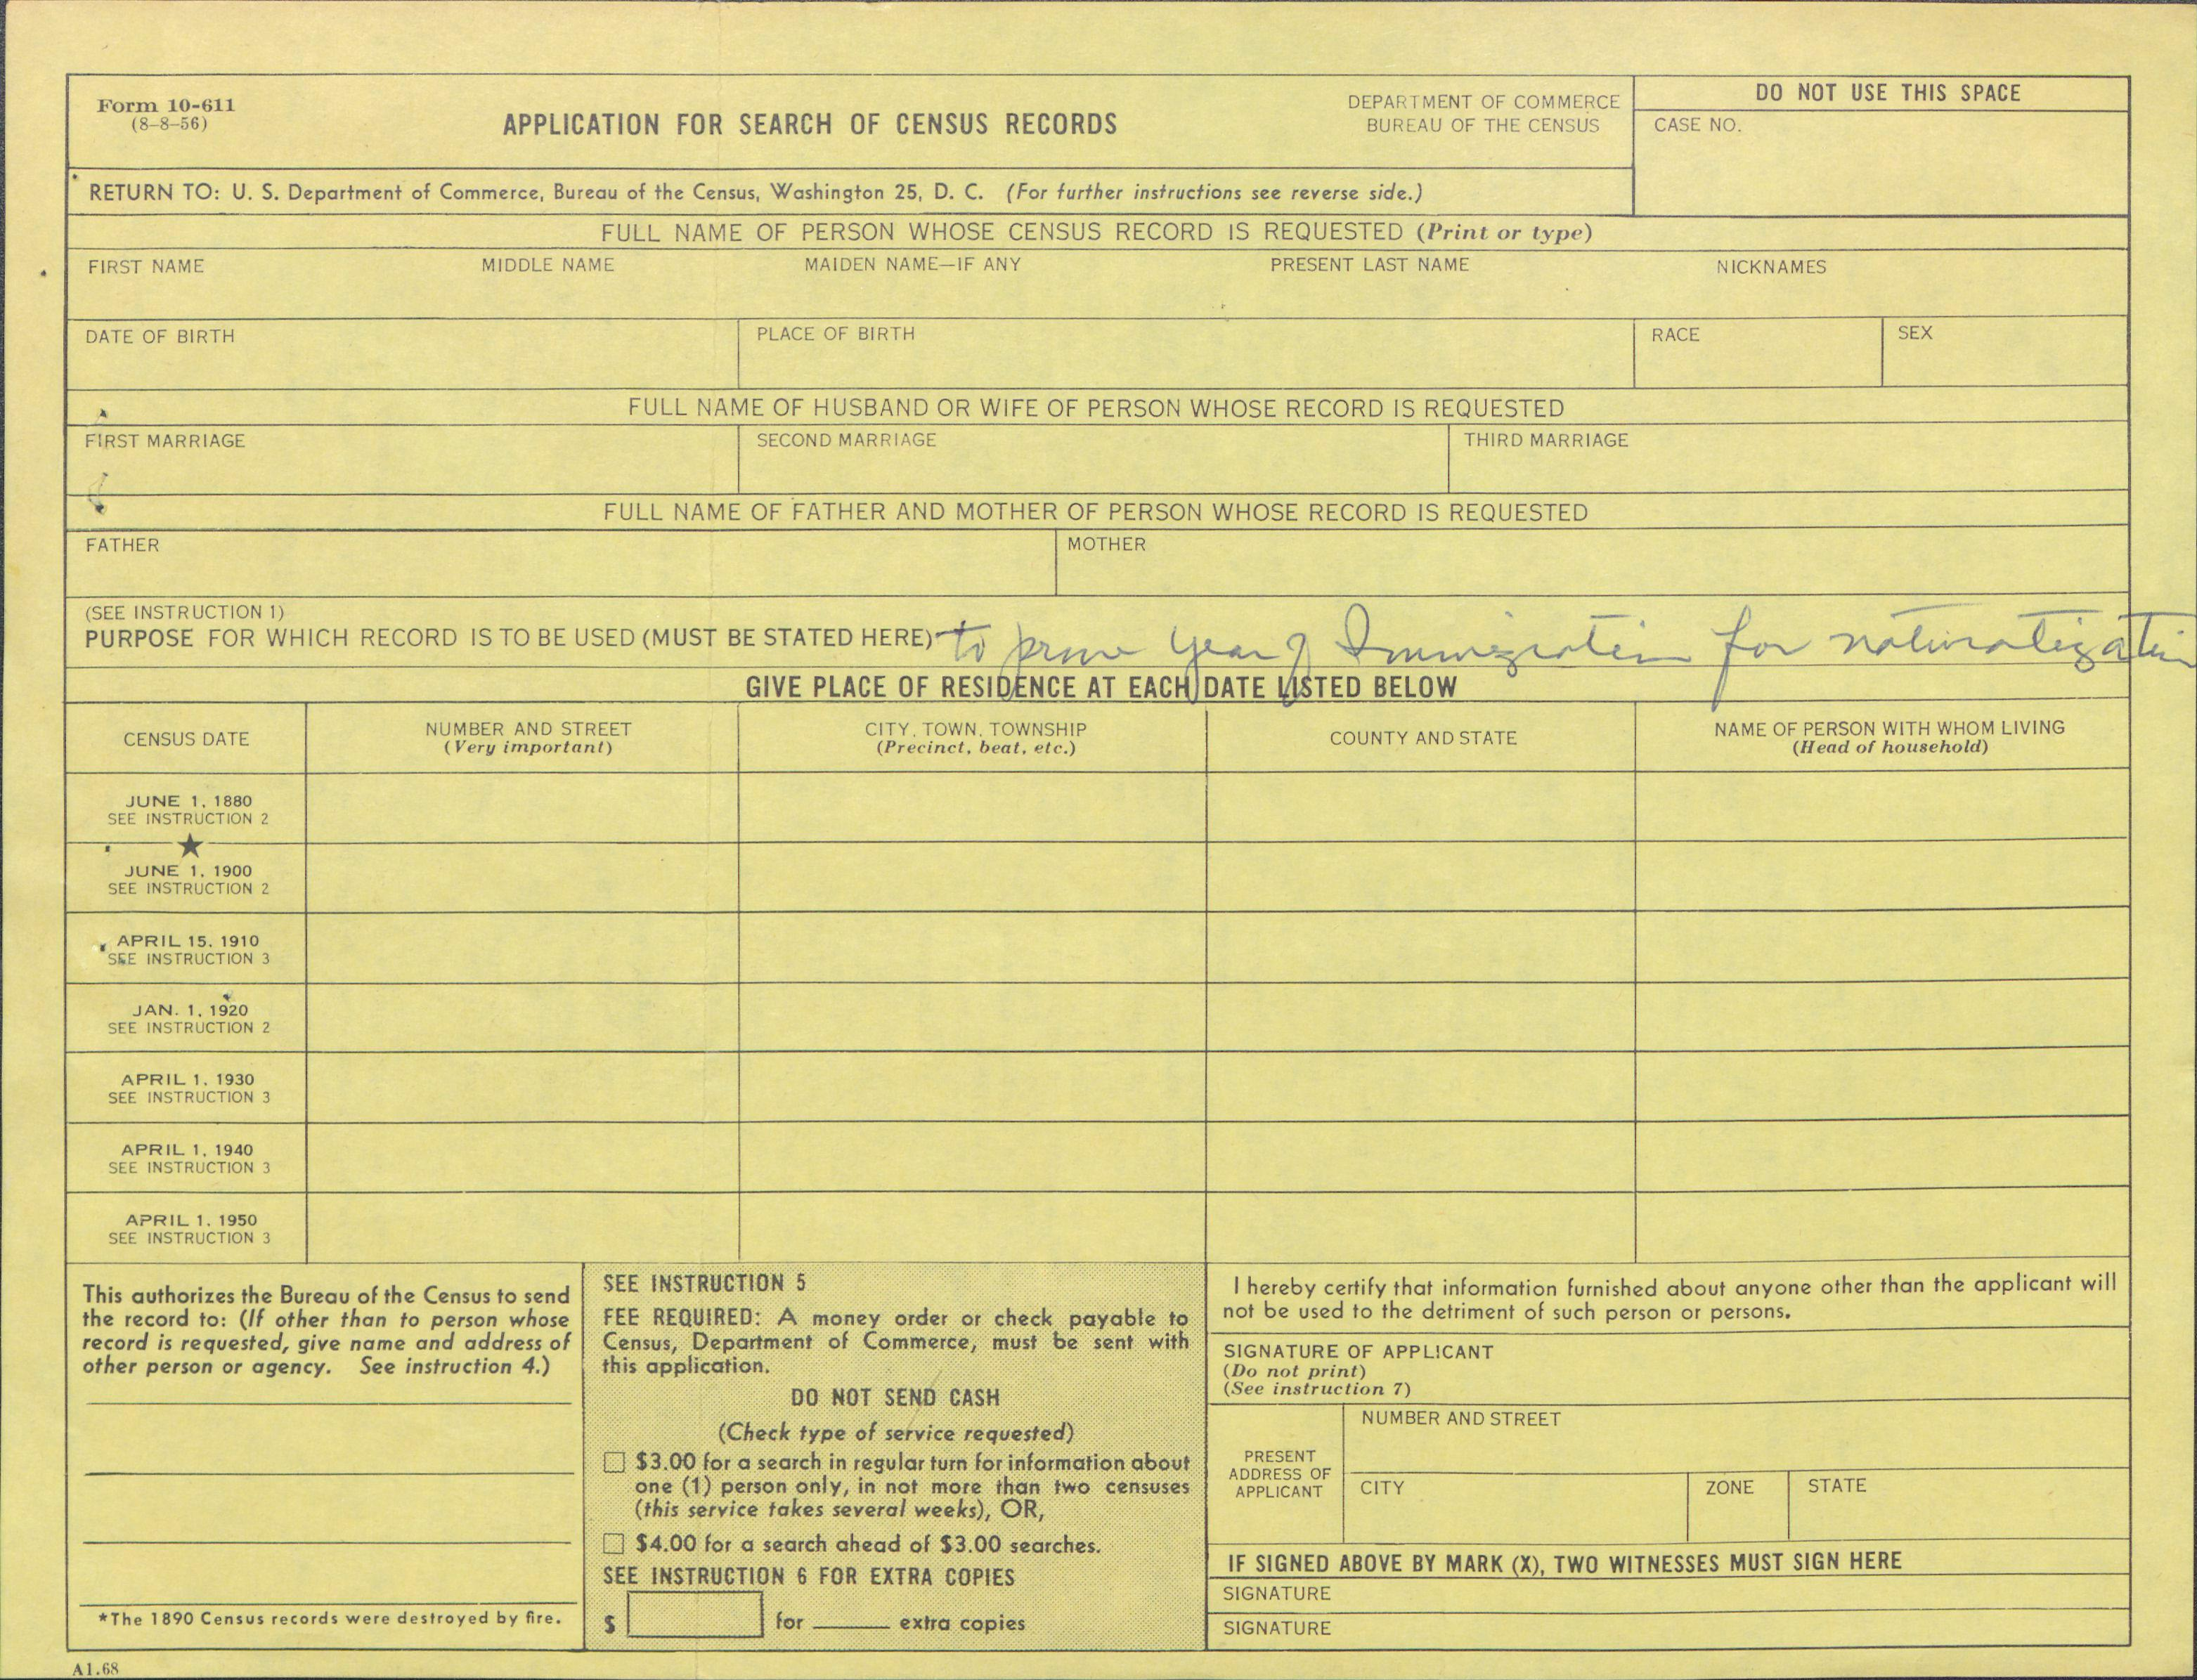 Form 10-611
(8-8-56)
APPLICATION FOR SEARCH OF CENSUS RECORDS
DEPARTMENT OF COMMERCE
BUREAU OF THE CENSUS
DO NOT USE THIS SPACE
CASE NO.
RETURN TO: U. S. Department of Commerce, Bureau of the Census, Washington 25, D. C. (For further instructions see reverse side.)
FULL NAME OF PERSON WHOSE CENSUS RECORD IS REQUESTED (Print or type)
FIRST NAME MIDDLE NAME MAIDEN NAME—IF ANY PRESENT LAST NAME NICKNAMES
DATE OF BIRTH PLACE OF BIRTH RACE SEX
FULL NAME OF HUSBAND OR WIFE OF PERSON WHOSE RECORD IS REQUESTED
FIRST MARRIAGE SECOND MARRIAGE THIRD MARRIAGE
FULL NAME OF FATHER AND MOTHER OF PERSON WHOSE RECORD IS REQUESTED
FATHER MOTHER
(SEE INSTRUCTION 1)
PURPOSE FOR WHICH RECORD IS TO BE USED (MUST BE STATED HERE) to prove year of Immigration for naturalization
GIVE PLACE OF RESIDENCE AT EACH DATE LISTED BELOW
CENSUS DATE
NUMBER AND STREET
(Very important)
CITY, TOWN, TOWNSHIP
(Precinct, beat, etc.)
COUNTY AND STATE
NAME OF PERSON WITH WHOM LIVING
(Head of household)
JUNE 1, 1880
SEE INSTRUCTION 2
★
JUNE 1, 1900
SEE INSTRUCTION 2
APRIL 15, 1910
SEE INSTRUCTION 3
JAN. 1, 1920
SEE INSTRUCTION 2
APRIL 1, 1930
SEE INSTRUCTION 3
APRIL 1, 1940
SEE INSTRUCTION 3
APRIL 1, 1950
SEE INSTRUCTION 3
This authorizes the Bureau of the Census to send
the record to: (If other than to person whose
record is requested, give name and address of
other person or agency. See instruction 4.)
*The 1890 Census records were destroyed by fire.
SEE INSTRUCTION 5
FEE REQUIRED: A money order or check payable to
Census, Department of Commerce, must be sent with
this application.
DO NOT SEND CASH
(Check type of service requested)
☐ $3.00 for a search in regular turn for information about
one (1) person only, in not more than two censuses
(this service takes several weeks), OR,
☐ $4.00 for a search ahead of $3.00 searches.
SEE INSTRUCTION 6 FOR EXTRA COPIES
$ for ______ extra copies
I hereby certify that information furnished about anyone other than the applicant will
not be used to the detriment of such person or persons.
SIGNATURE OF APPLICANT
(Do not print)
(See instruction 7)
PRESENT
ADDRESS OF
APPLICANT
NUMBER AND STREET
CITY ZONE STATE
IF SIGNED ABOVE BY MARK (X), TWO WITNESSES MUST SIGN HERE
SIGNATURE
SIGNATURE
A1.68